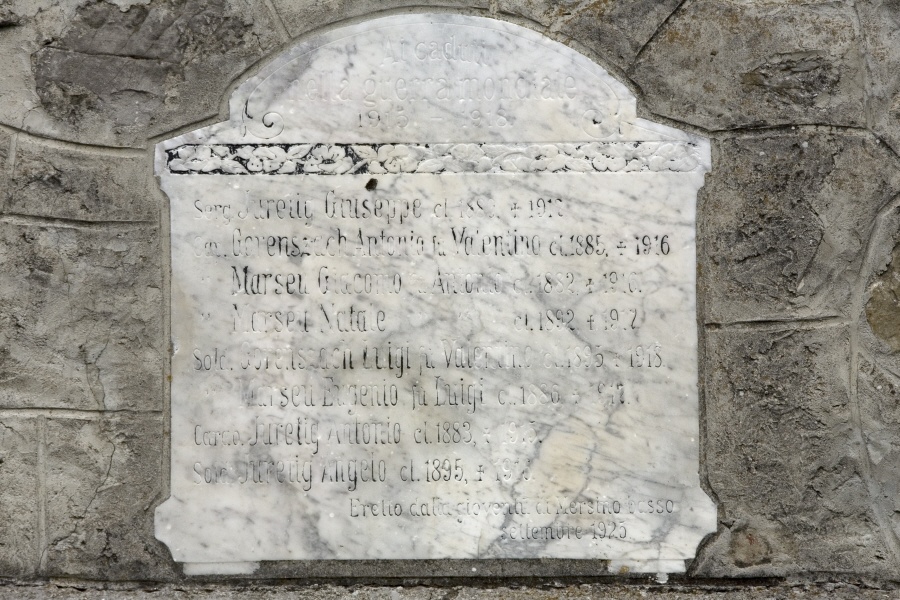 Ai caduti
nella guerra mondiale
1915 1918
Serg. Juretig Giuseppe cl. 188 + 191
Antonio fu Valentino cl. 1885, + 1916
" Marseu Giacomo Antonio cl. 1882, + 191
" Marseu Natale cl. 1892 + 1917
Sold. Luigi fu cl. + 1918
Marseu Eugenio fu Luigi cl. 1886 + 1917
Juretig Antonio cl. 1883, +
Sold. Juretig Angelo cl. 1895, +
Eretto dalla gioventù di Mersino basso
settembre 1925